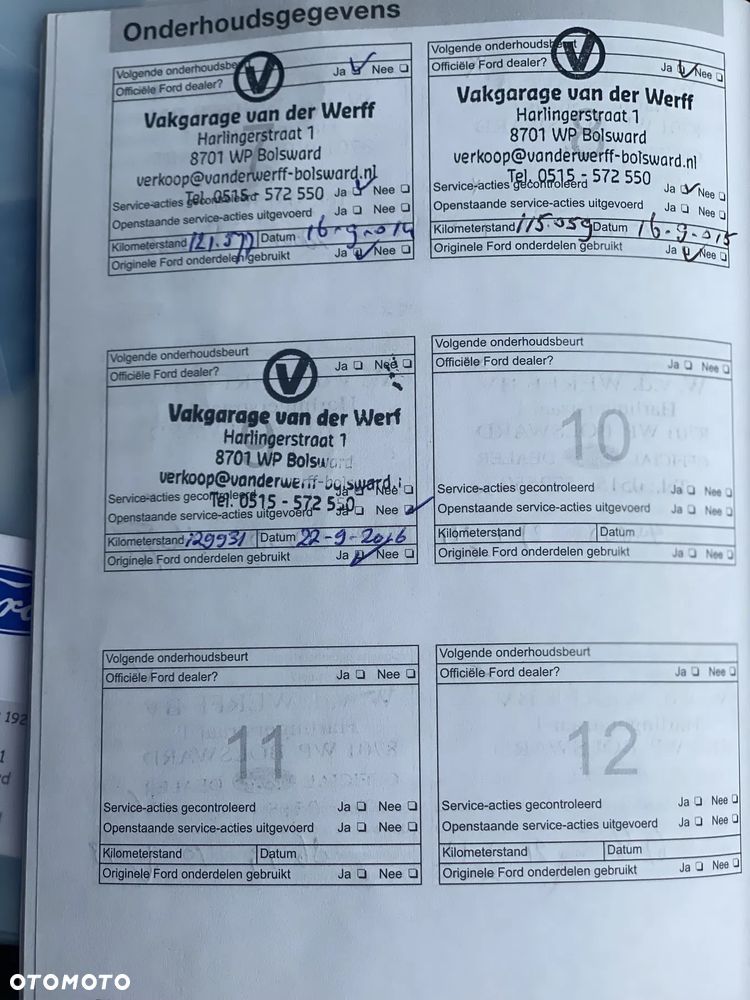 Onderhoudsgegevens
Volgende onderhoudsbeurt
Officiële Ford dealer? Ja Nee
V
Vakgarage van der Werff
Harlingerstraat 1
8701 WP Bolsward
verkoop@vanderwerff-bolsward.nl
Tel. 0515 - 572 550
Service-acties gecontroleerd Ja Nee
Openstaande service-acties uitgevoerd Ja Nee
Kilometerstand Datum 16-9-014
Originele Ford onderdelen gebruikt Ja Nee
Volgende onderhoudsbeurt
Officiële Ford dealer? Ja Nee
V
8
Vakgarage van der Werff
Harlingerstraat 1
8701 WP Bolsward
verkoop@vanderwerff-bolsward.nl
Tel. 0515 - 572 550
Service-acties gecontroleerd Ja Nee
Openstaande service-acties uitgevoerd Ja Nee
Kilometerstand 115.059 Datum 16-9-015
Originele Ford onderdelen gebruikt Ja Nee
Volgende onderhoudsbeurt
Officiële Ford dealer? Ja Nee
V
Vakgarage van der Werf
Harlingerstraat 1
8701 WP Bolsward
verkoop@vanderwerff-bolsward.
Tel. 0515 - 572 550
Service-acties gecontroleerd Ja Nee
Openstaande service-acties uitgevoerd Ja Nee
Kilometerstand 129931 Datum 22-9-2016
Originele Ford onderdelen gebruikt Ja Nee
Volgende onderhoudsbeurt
Officiële Ford dealer? Ja Nee
10
Service-acties gecontroleerd Ja Nee
Openstaande service-acties uitgevoerd Ja Nee
Kilometerstand Datum
Originele Ford onderdelen gebruikt Ja Nee
Volgende onderhoudsbeurt
Officiële Ford dealer? Ja Nee
11
Service-acties gecontroleerd Ja Nee
Openstaande service-acties uitgevoerd Ja Nee
Kilometerstand Datum
Originele Ford onderdelen gebruikt Ja Nee
Volgende onderhoudsbeurt
Officiële Ford dealer? Ja Nee
12
Service-acties gecontroleerd Ja Nee
Openstaande service-acties uitgevoerd Ja Nee
Kilometerstand Datum
Originele Ford onderdelen gebruikt Ja Nee
192
OTOMOTO